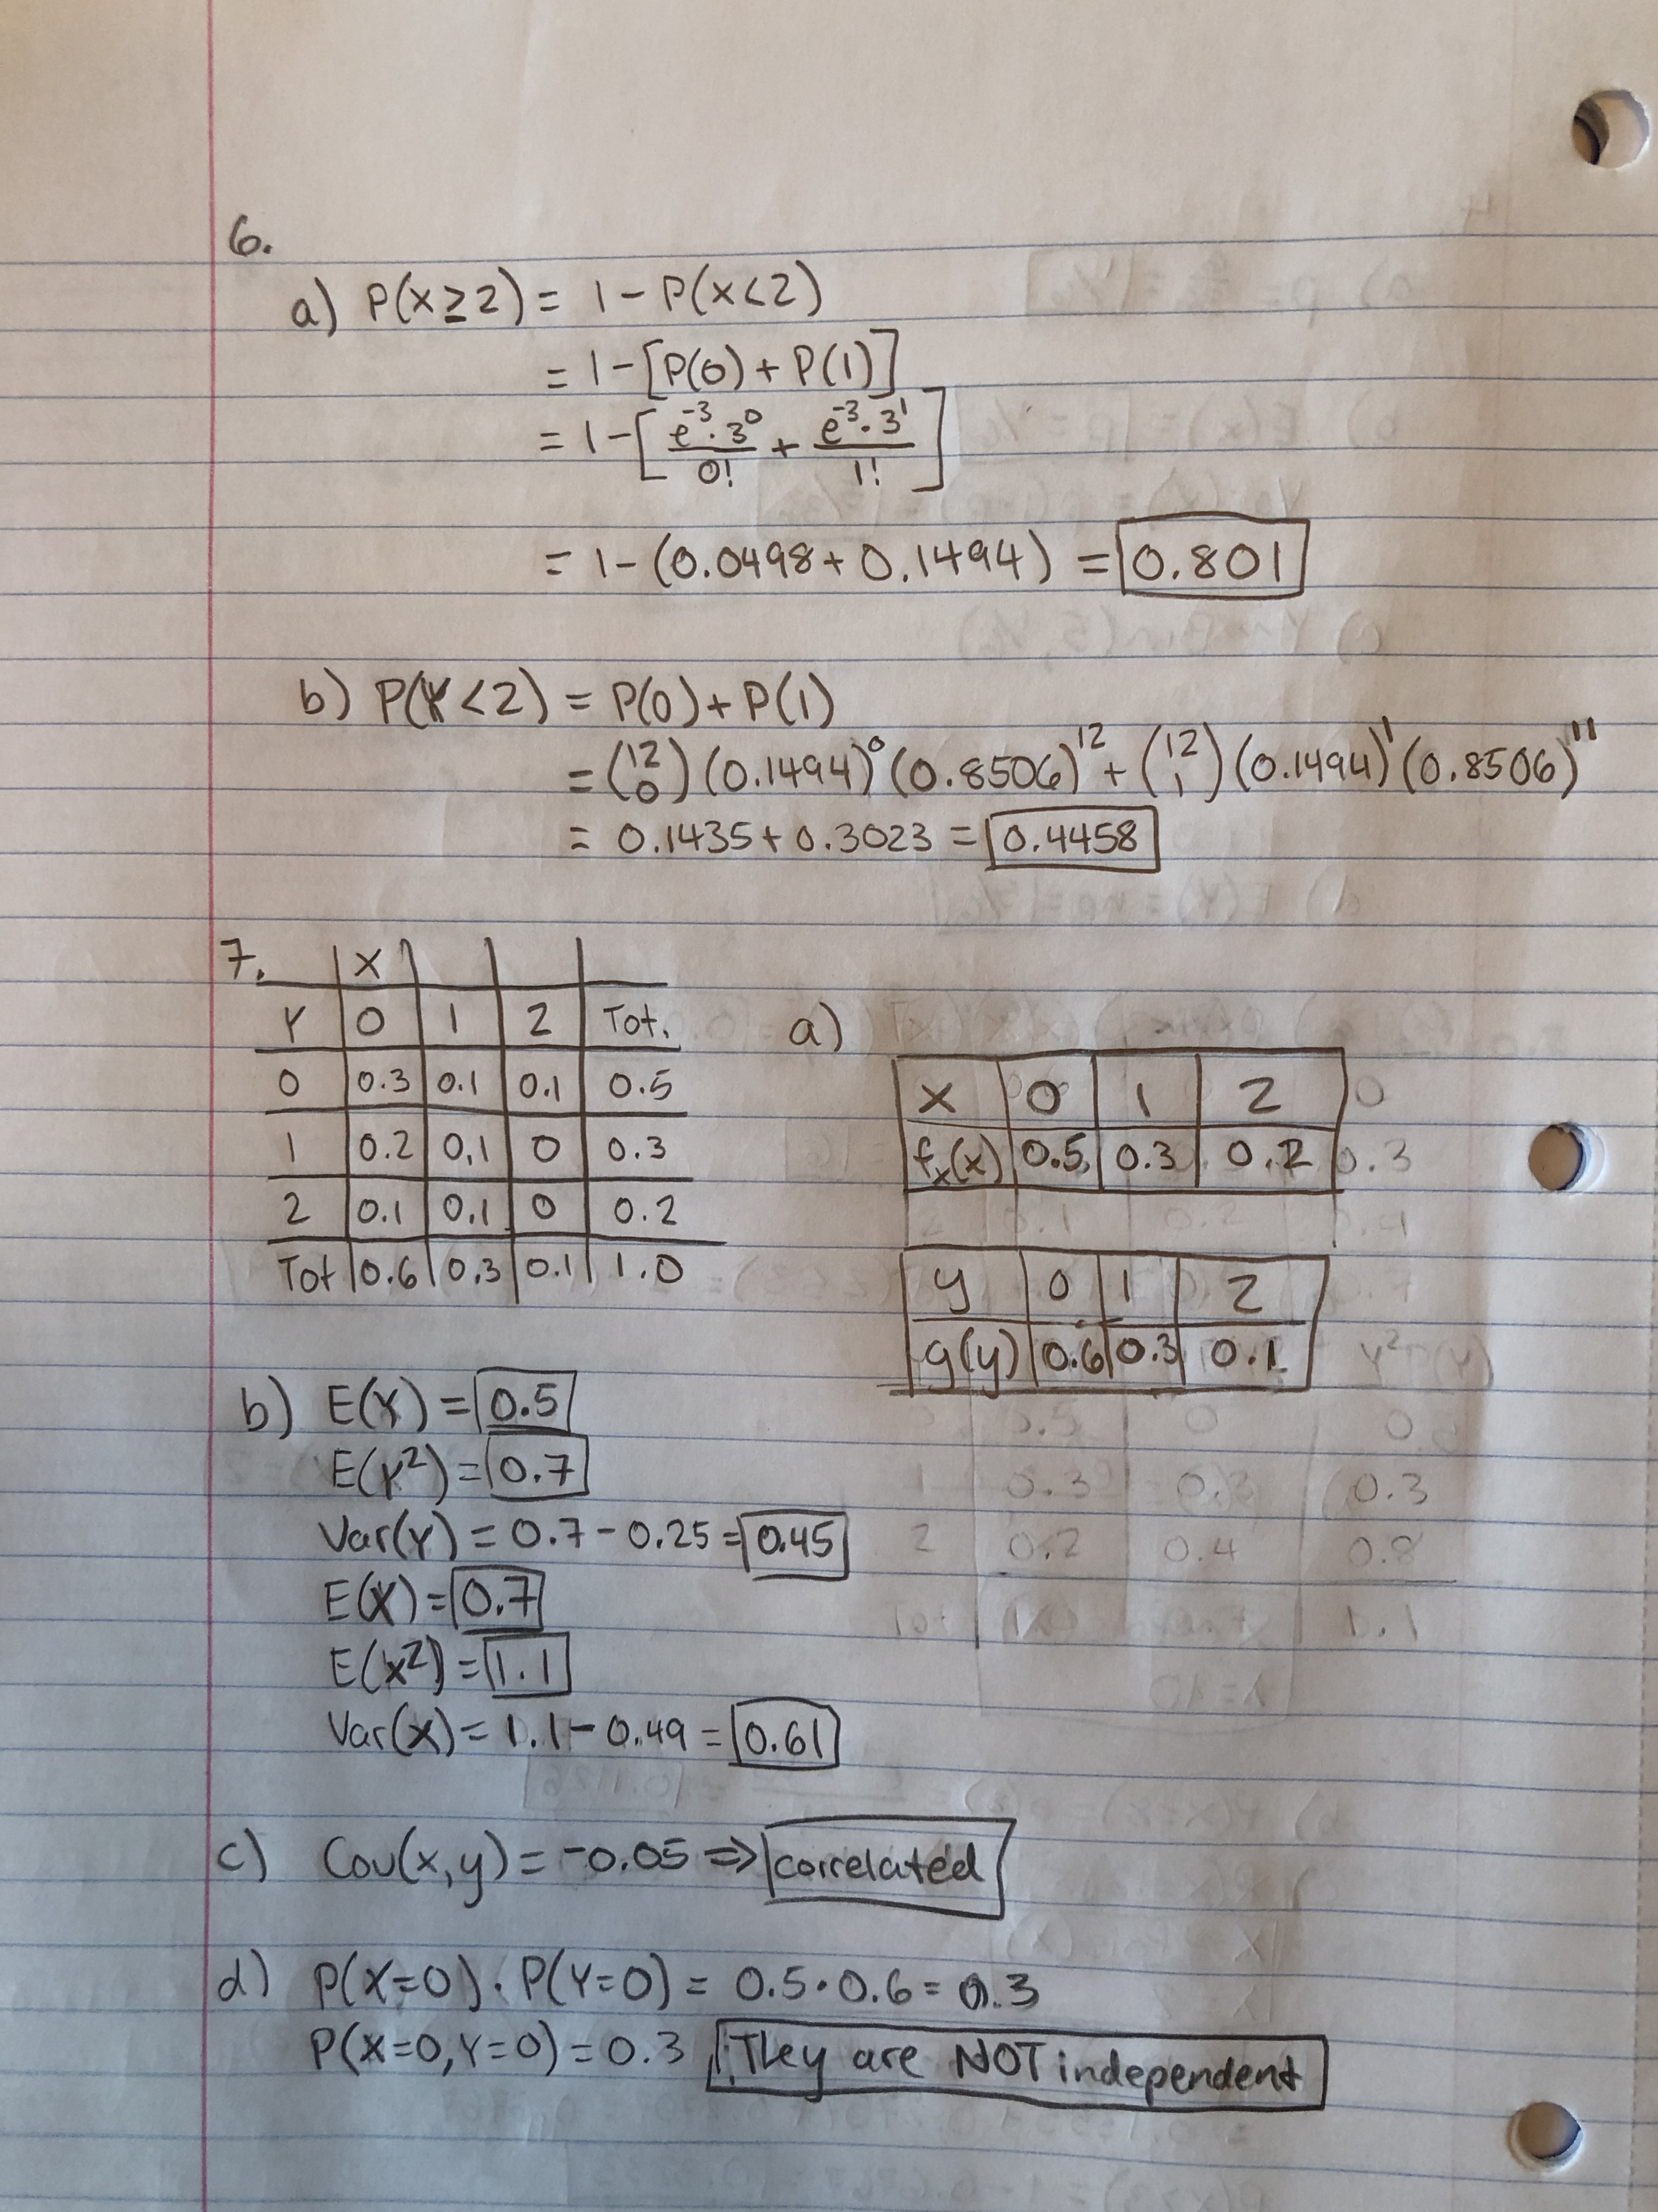 6.
a) P(X≥2) = 1 - P(X<2)
= 1 - [P(0) + P(1)]
= 1 - [e^-3 · 3^0 / 0! + e^-3 · 3^1 / 1!]
= 1 - (0.0498 + 0.1494) = 0.801
b) P(Y<2) = P(0) + P(1)
= (12 0)(0.1494)^0 (0.8506)^12 + (12 1)(0.1494)^1 (0.8506)^11
= 0.1435 + 0.3023 = 0.4458
7.
X
Y 0 1 2 Tot.
0 0.3 0.1 0.1 0.5
1 0.2 0.1 0 0.3
2 0.1 0.1 0 0.2
Tot 0.6 0.3 0.1 1.0
a)
X 0 1 2
fx(x) 0.5 0.3 0.2
y 0 1 2
g(y) 0.6 0.3 0.1
b) E(Y) = 0.5
E(Y²) = 0.7
Var(Y) = 0.7 - 0.25 = 0.45
E(X) = 0.7
E(x²) = 1.1
Var(x) = 1.1 - 0.49 = 0.61
c) Cov(x,y) = -0.05 => correlated
d) P(X=0) · P(Y=0) = 0.5 · 0.6 = 0.3
P(X=0, Y=0) = 0.3 ∴ They are NOT independent